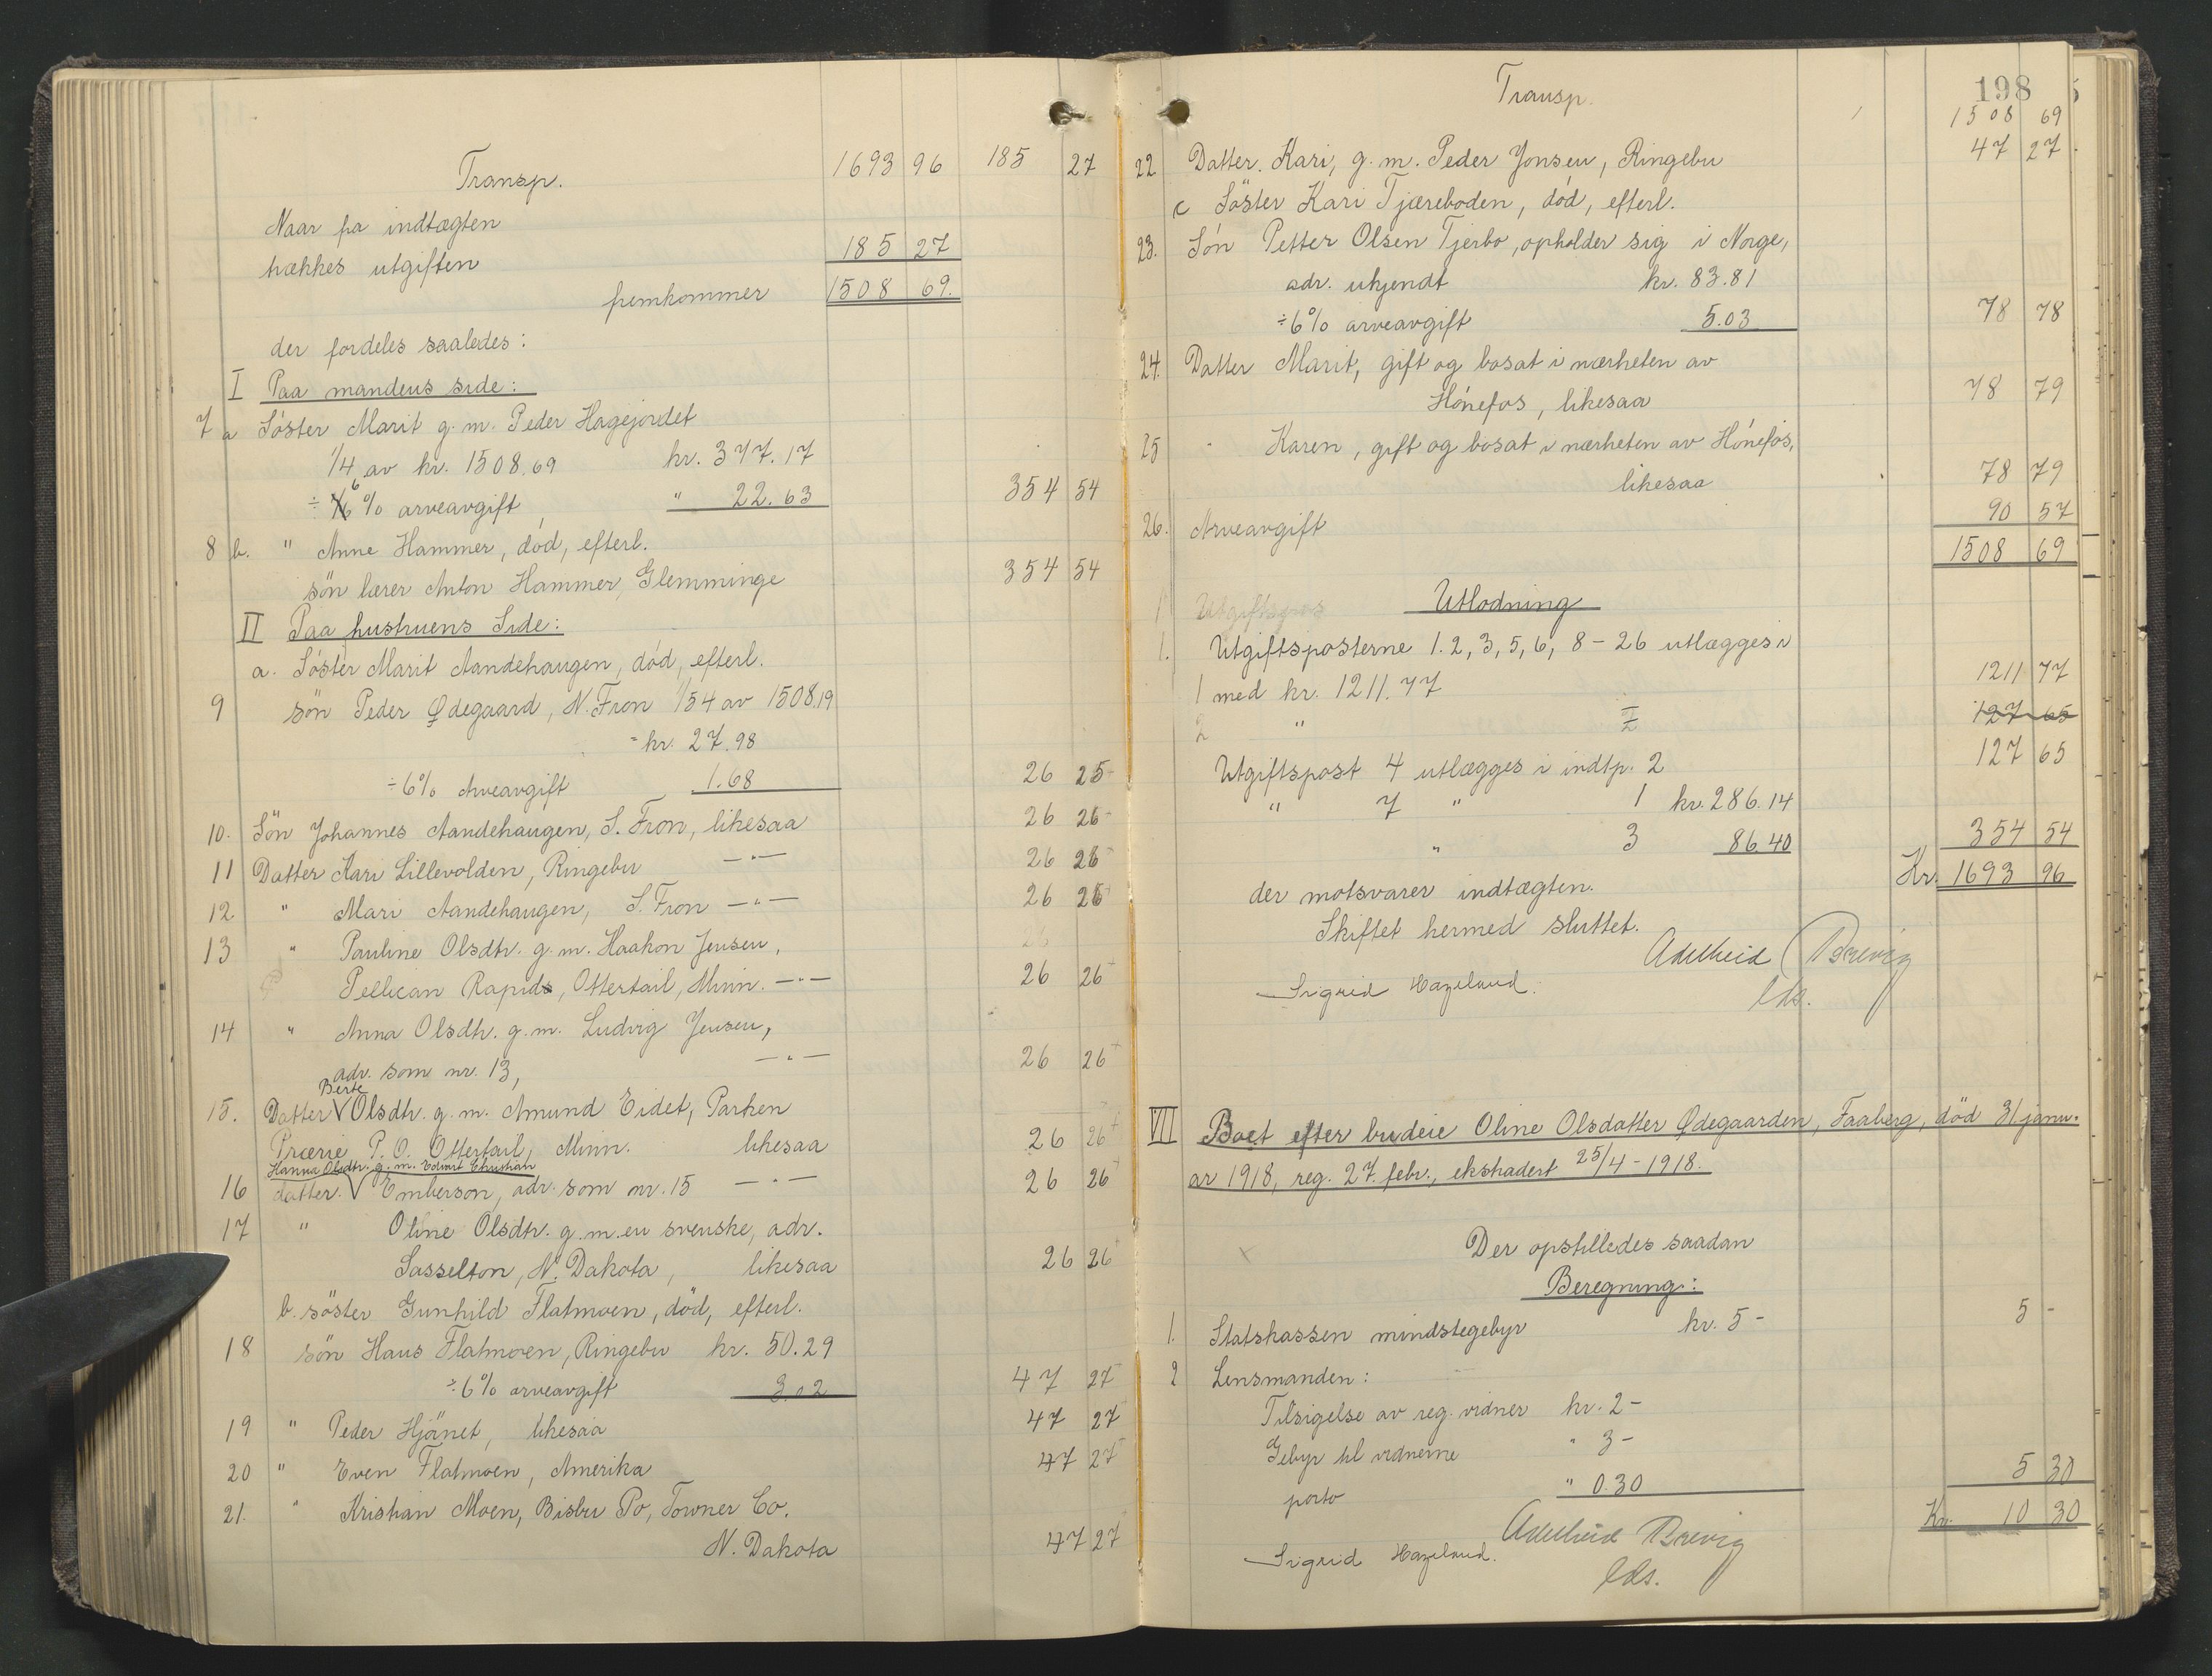 Transp. 1693 96 185 27
Naar fra indtægten
trækkes utgiften 185 27
fremkommer 1508 69.
der fordeles saaledes:
I Paa mandens side:
7 a Söster Marit g. m. Peder Hagejordet
1/4 av kr. 1508.69 kr. 377.17
÷ 6 % arveavgift " 22.63 354 54
8 b. " Anne Hammer, död, efterl.
sön lærer Anton Hammer, Glemminge 354 54
II Paa hustruens Side:
a. Söster Marit Aandehaugen, död, efterl.
9 sön Peder Ødegaard, N. Fron 1/54 av 1508.19
= kr. 27.98
÷ 6% Arveavgift 1.68 26 25
10. Sön Johannes Aandehaugen, S. Fron, likesaa 26 26
11 Datter Kari Lillevolden, Ringebu —"— 26 26
12 " Mari Aandehaugen, S. Fron —"— 26 26
13 " Pauline Olsdtr. g. m. Haakon Jensen,
Pellican Rapids, Ottertail, Minn. —"— 26 26
14 " Anna Olsdtr. g. m. Ludvig Jensen,
adr. som nr. 13, —"— 26 26
Berte
15. Datter V Olsdtr. g. m. Amund Eidet, Parken
Prærie P. O. Ottertail, Minn. likesaa 26 26
Hanna Olsdtr. g. m. Edvart Christian
16 datter. V Emberson, adr. som nr. 15 —"— 26 26
17 " Oline Olsdtr. g. m. en svenske, adr.
Sasselton, N. Dakota, likesaa 26 26
b. söster Gunhild Flatmoen, död, efterl.
18 sön Hans Flatmoen, Ringebu kr. 50.29
÷ 6% arveavgift 3.02 47 27
19 " Peder Hjönet, likesaa 47 27
20 " Even Flatmoen, Amerika 47 27
21. " Kristian Moen, Bisbu Po, Towner Co.
N. Dakota 47 27
198
Transp. 1508 69
22 Datter Kari, g. m. Peder Jonsen, Ringebu 47 27
c Söster Kari Tjæreboden, död, efterl.
23. Sön Petter Olsen Tjerbo, opholder sig i Norge,
adr. ukjendt kr. 83.81
÷ 6% arveavgift 5.03 78 78
24. Datter Marit, gift og bosat i nærheten av
Hönefos, likesaa 78 79
25 " Karen, gift og bosat i nærheten av Hönefos,
likesaa 78 79
26. Arveavgift 90 57
1508 69
1 Utgiftspos Utlodning
1. Utgiftsposterne 1. 2, 3, 5, 6, 8 - 26 utlægges i
1 med kr. 1211.77 1211 77
2 " 2 127 65
Utgiftspost 4 utlægges i indtp. 2 127 65
" 7 " 1 kr. 286.14
" 3 86.40 354 54
der motsvarer indtægten. Kr. 1693 96
Skiftet hermed sluttet.
Adelheid Brevig
Sigrid Hazeland. eds.
VII Boet efter budeie Oline Olsdatter Ødegaarden, Faaberg, död 31 janu-
ar 1918, reg. 27. febr., ekstradert 25/4 - 1918.
Der opstilledes saadan
Beregning:
1. Statskassen mindstegebyr kr. 5 - 5 -
2 Lensmanden:
Tilsigelse av reg. vidner kr. 2 -
Gebyr til vidnerne " 3 -
porto " 0.30 5 30
Kr. 10 30
Adelheid Brevig
Sigrid Hazeland. eds.